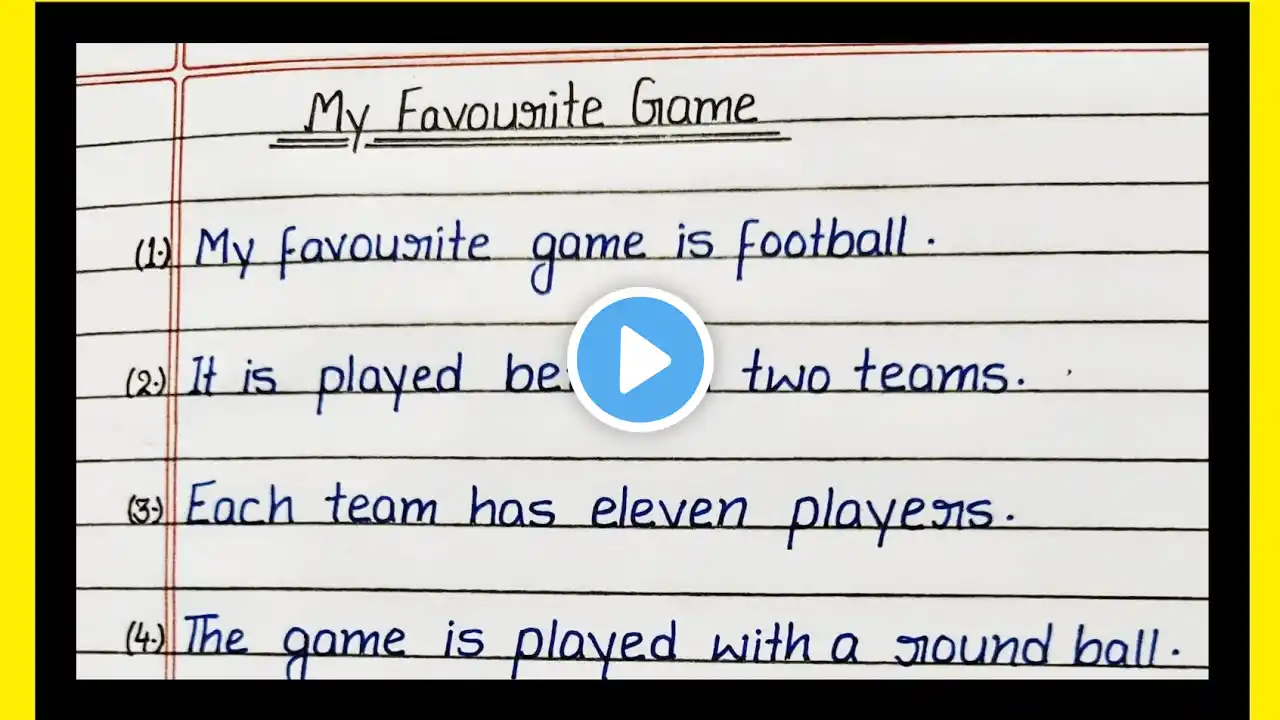 My Favourite Game
(1.) My favourite game is football.
(2.) It is played two teams.
(3.) Each team has eleven players.
(4.) The game is played with a round ball.